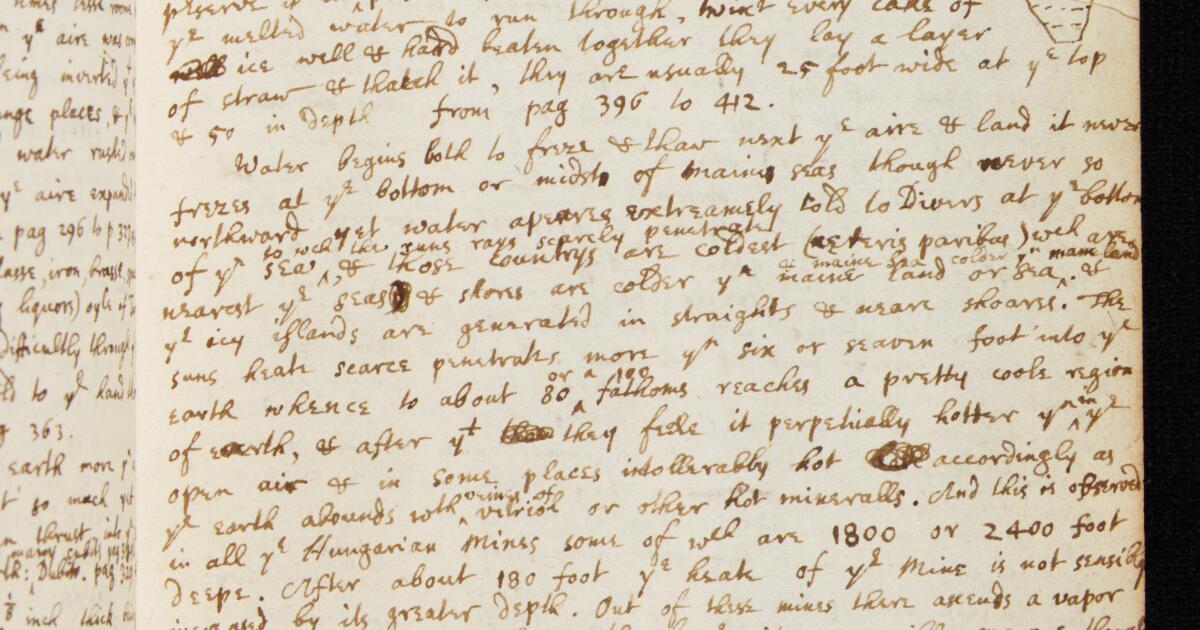 times these room
yᵉ aire was con
being inverted yᵉ
ange places, &
water rusted
yᵉ aire expand
pag 296 to p
lasse, iron, brasse,
liquors) oyle of
difficultly through
ld to yᵉ hand
363.
earth more yⁿ
so much yet
thrust into
many cubits pag
Dublin. pag
1/8 inch thick
preserve it to run through, twixt every cake of
yᵉ melted water
ice well & hard beaten together they lay a layer
of straw & thatch it, they are usually 25 foot wide at yᵉ top
& 50 in depth from pag 396 to 412.
Water begins both to freze & thaw next yᵉ aire & land it never
frezes at yᵉ bottom or midst of maine seas though never so
northward yet water apeares extreamely cold to Divers at yᵉ bottom
to wᶜʰ the suns rays scarcely penetrate
of yᵉ sea ‸, & those countrys are coldest (ceteris paribus) wᶜʰ are
maine sea colder yⁿ maine land
nearest yᵉ seas & shores are colder yⁿ maine land or sea. &
yᵉ icy islands are generated in straights & neare shoares. The
suns heate scarce penetrates more yⁿ six or seaven foot into yᵉ
or a 100
earth whence to about 80 ‸ fathoms reaches a pretty coole region
of earth, & after yᵗ they feele it perpetually hotter yⁿ in ‸ yᵉ
open air & in some places intollerabby hot accordingly as
veines of
yᵉ earth abounds wth ‸ vitriol or other hot mineralls. And this is observed
in all yᵉ Hungarian Mines some of wᶜʰ are 1800 or 2400 foot
deepe. After about 180 foot yᵉ heate of yᵉ Mine is not sensibly
increased by its greater depth. Out of these mines there ascends a vapor